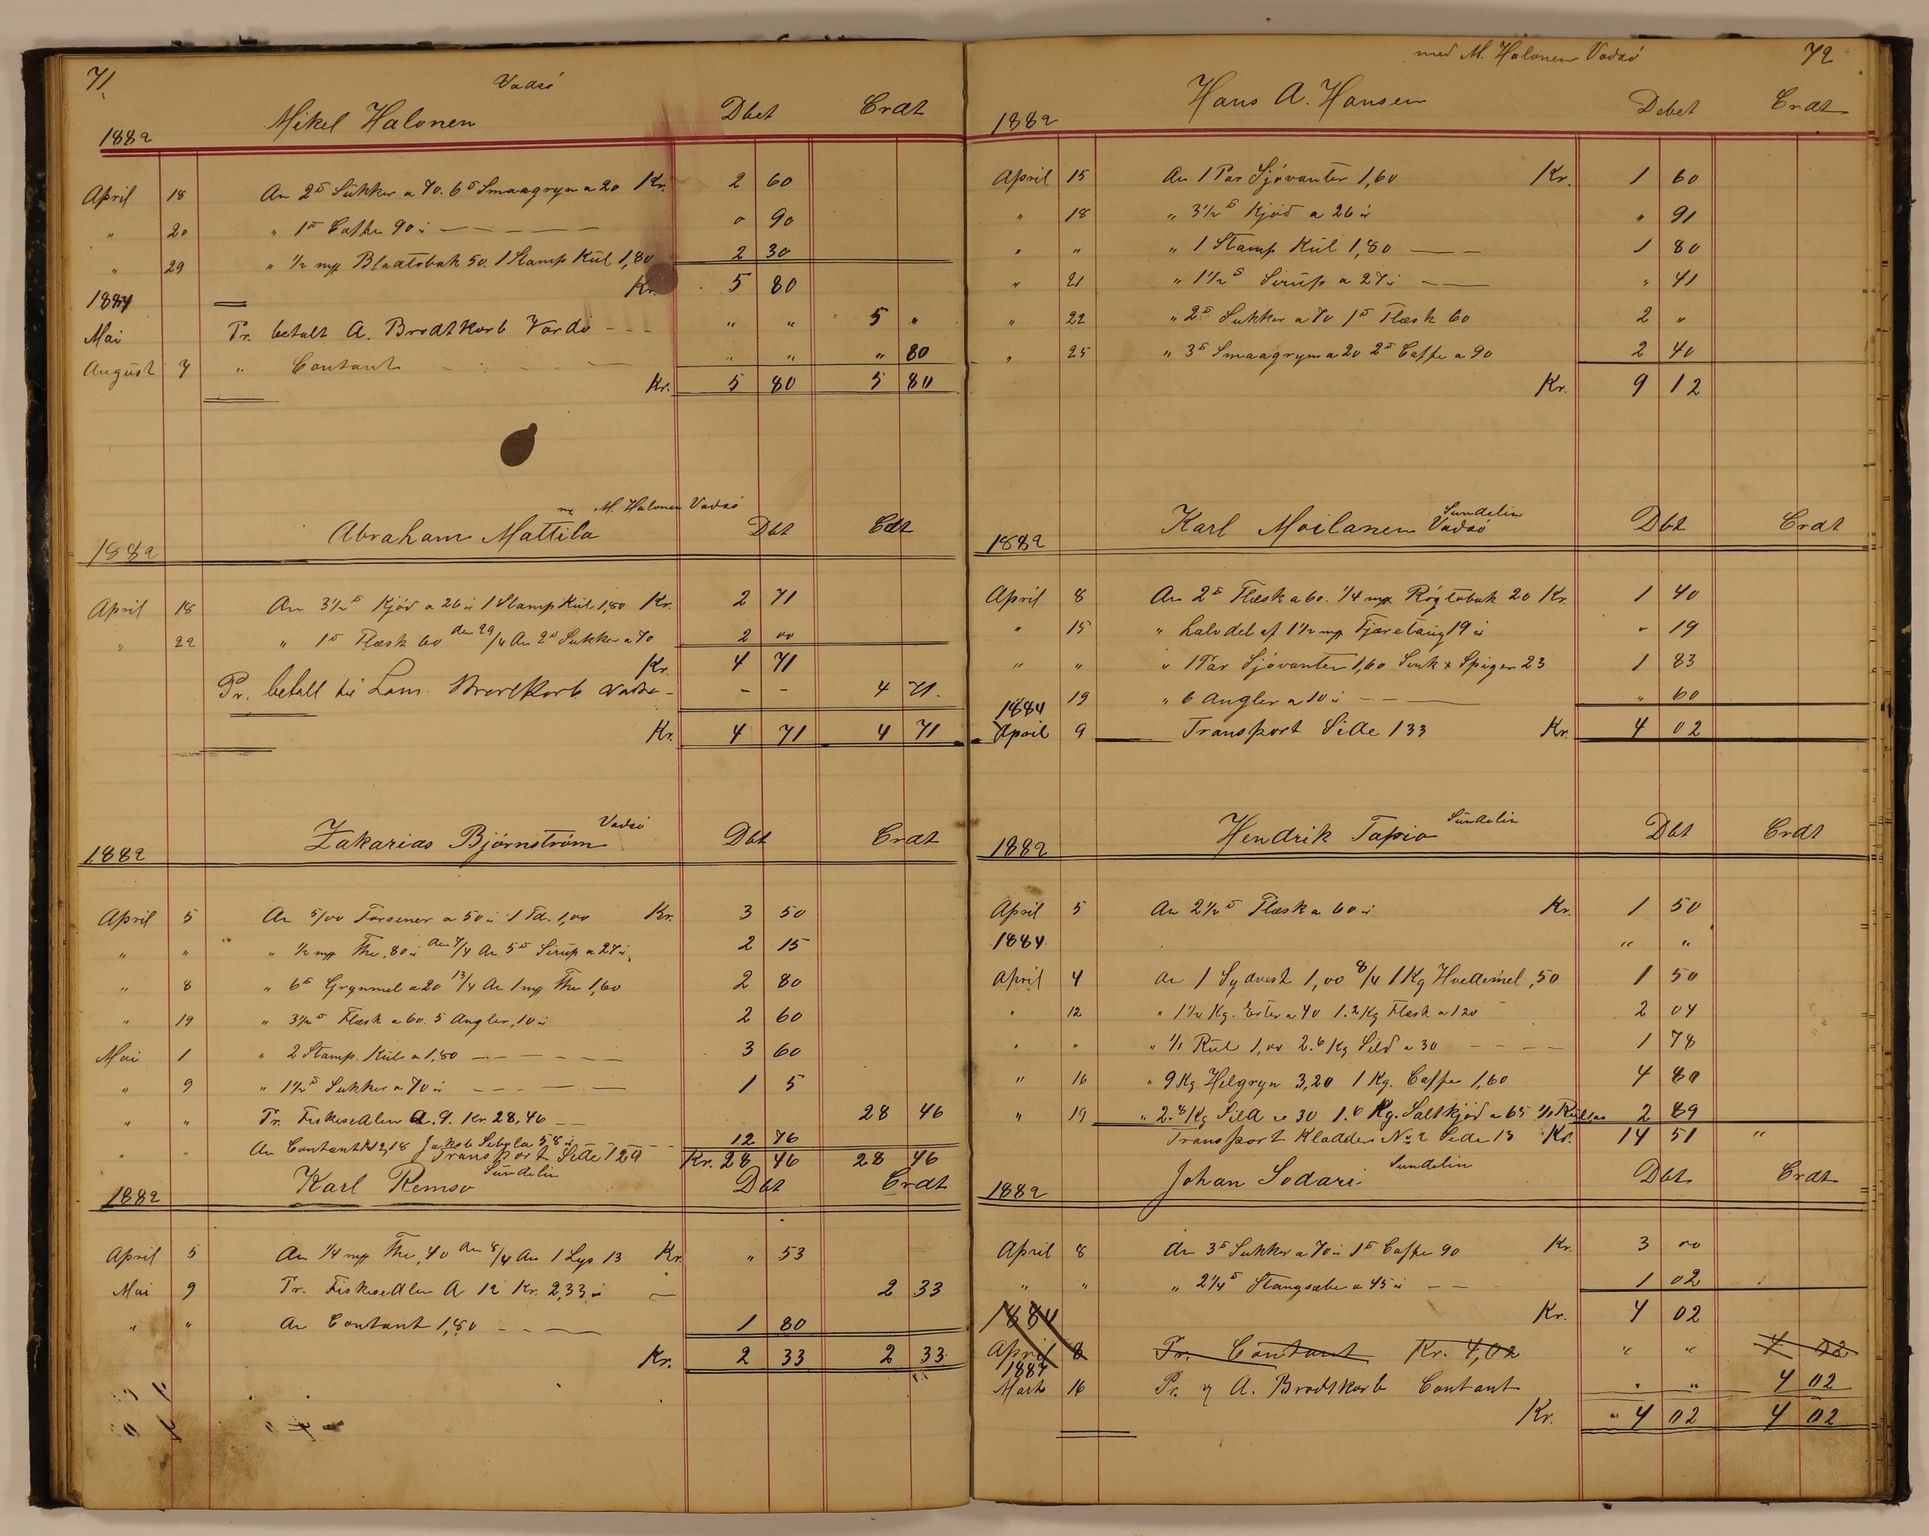 71
Vadsö
Mikel Halonen Dbet Crdt
1882
April 18 An 2 ℔ Sukker a 70. 6 ℔ Smaagryn a 20 Kr. 2 60
" 20 " 1 ℔ Caffe 90 ö 0 90
" 29 " 1/2 mp Bladtobak 50. 1 Stamp Kul 1,80 2 30
Kr. 5 80
1884
Mai Pr. betalt A. Brodtkorb Vardö " " 5 "
August 7 " Contant " " " 80
Kr. 5 80 5 80
M. Halonen Vadsö
Abraham Mattila Dbt Cdt
1882
April 18 An 3 1/2 ℔ Kjöd a 26 ö 1 Stamp Kul 1,80 Kr. 2 71
" 22 " 1 ℔ Flæsk 60 den 29/4 An 2 ℔ Sukker a 70 2 00
Kr. 4 71
Pr. betalt til Brodtkorb - - 4 71
Kr. 4 71 4 71
Vadsö
Zakarias Bjørnstrøm Dbt Crdt
1882
April 5 An 5/00 Forsener a 50 ö 1 Td. 1,00 Kr. 3 50
" " " 1/2 mp The ,80 ö den 7/4 An 5 ℔ Sirup a 27 ö 2 15
" 8 " 6 ℔ Grynmel a 20 13/4 An 1 mp The 1,60 2 80
" 19 " 3 1/2 ℔ Flæsk a 60. 5 Angler ,10 ö 2 60
Mai 1 " 2 Stamp. Kul a 1,80 3 60
" 9 " 1 1/2 ℔ Sukker a 70 ö 1 5
" " Pr. Fiskesedlen A. 9. Kr. 28,46 28 46
" " An Contant 12,18 Jakob Sebyla 58 ö 12 76
Transport Side 129 Kr. 28 46 28 46
Sundelin
Karl Remso Dbt Crdt
1882
April 5 An 1/4 mp The ,40 den 8/4 An 1 Lys 13 Kr. " 53
Mai 9 Pr. Fiskesedlen A 12 Kr. 2,33 ö 2 33
" " An Contant 1,80 1 80
Kr. 2 33 2 33
med M. Halonen Vadsö 72
Hans A. Hansen Debet Crdt
1882
April 15 An 1 Par Sjövanter 1,60 Kr. 1 60
" 18 " 3 1/2 ℔ Kjöd a 26 ö " 91
" " " 1 Stamp Kul 1,80 1 80
" 21 " 1 1/2 ℔ Sirup a 27 ö " 41
" 22 " 2 ℔ Sukker a 70 1 ℔ Flæsk 60 2 "
" 25 " 3 ℔ Smaagryn a 20 2 ℔ Caffe a 90 2 40
Kr. 9 12
Sundelin
Karl Moilanen Vadsö Dbt Crdt
1882
April 8 An 2 ℔ Flæsk a 60. 1/4 mp Rögtobak 20 Kr. 1 40
" 15 " halvdel af 1 1/2 mp Tjæretaug 19 ö " 19
" " " 1 Par Sjövanter 1,60 Sink & Spiger 23 1 83
" 19 " 6 Angler a 10 ö " 60
1884
April 9 Transport Side 133 Kr. 4 02
Sundelin
Hendrik Tapio Dbt Crdt
1882
April 5 An 2 1/2 ℔ Flæsk a 60 ö Kr. 1 50
1884 " "
April 4 An 1 Sydvest 1,00 8/4 1 Kg Hvedemel ,50 1 50
" 12 " 1 1/2 Kg. Erter a 40 1.2 Kg Flæsk a 120 2 04
" " " 1/1 Kul 1,00 2.6 Kg Sild a 30 1 78
" 16 " 9 Kg Helgryn 3,20 1 Kg. Caffe 1,60 4 80
" 19 " 2.8 Kg Sild a 30 1.6 Kg. Saltkjöd a 65 1/1 Kul 1,00 2 89
Transport Kladden No 2 Side 13 Kr. 14 51 "
Sundelin
Johan Sodari Dbt Crdt
1882
April 8 An 3 ℔ Sukker a 70 ö 1 ℔ Caffe 90 Kr. 3 00
" " " 2 1/4 ℔ Stangsæbe a 45 ö 1 02
Kr. 4 02
1884
April 8 Pr. Contant Kr. 4,02 " " 4 02
1887
Mart 16 Pr. A. Brodtkorb Contant " " 4 02
Kr. " 4 02 4 02